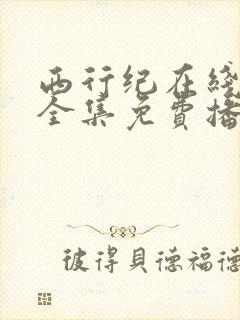 西行纪在綫
全集免費播
彼得貝德福德